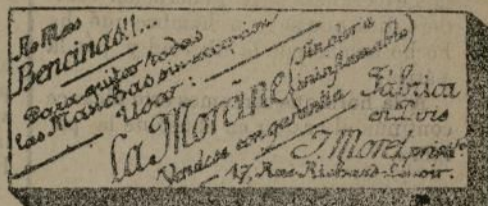 No Mas
Bencinas!!...
Para quitar todas
las Manchas sin excepción
Usar:
La Moreïne (sin olor e ininflamable)
Vendese con garantía
Fábrica
en
J. Morel,
17, Rue Richard-Lenoir.